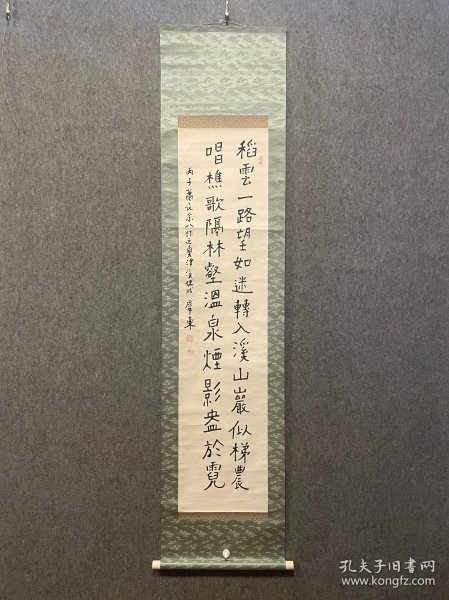 稻雲一路望如迷轉入溪山巖似梯農
唱樵歌隔林壑溫泉煙影盎於霓
丙子
孔夫子旧书网
www.kongfz.com